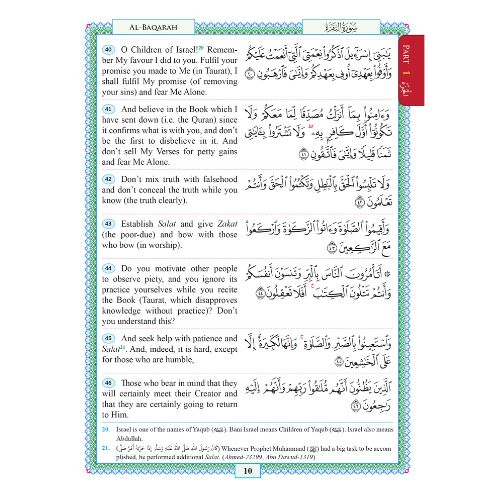 AL-BAQARAH
سُورَةُ الْبَقَرَةِ
PART 1
الجزء
40 O Children of Israel!20 Remem-
ber My favour I did to you. Fulfil your
promise you made to Me (in Taurat), I
shall fulfil My promise (of removing
your sins) and fear Me Alone.
يَـٰبَنِىٓ إِسْرَٰٓءِيلَ ٱذْكُرُوا۟ نِعْمَتِىَ ٱلَّتِىٓ أَنْعَمْتُ عَلَيْكُمْ
وَأَوْفُوا۟ بِعَهْدِىٓ أُوفِ بِعَهْدِكُمْ وَإِيَّـٰىَ فَٱرْهَبُونِ ٤٠
41 And believe in the Book which I
have sent down (i.e. the Quran) since
it confirms what is with you, and don't
be the first to disbelieve in it. And
don't sell My Verses for petty gains
and fear Me Alone.
وَءَامِنُوا۟ بِمَآ أَنزَلْتُ مُصَدِّقًا لِّمَا مَعَكُمْ وَلَا
تَكُونُوٓا۟ أَوَّلَ كَافِرٍۭ بِهِۦ ۖ وَلَا تَشْتَرُوا۟ بِـَٔايَـٰتِى
ثَمَنًا قَلِيلًا وَإِيَّـٰىَ فَٱتَّقُونِ ٤١
42 Don't mix truth with falsehood
and don't conceal the truth while you
know (the truth clearly).
وَلَا تَلْبِسُوا۟ ٱلْحَقَّ بِٱلْبَـٰطِلِ وَتَكْتُمُوا۟ ٱلْحَقَّ وَأَنتُمْ
تَعْلَمُونَ ٤٢
43 Establish Salat and give Zakat
(the poor-due) and bow with those
who bow (in worship).
وَأَقِيمُوا۟ ٱلصَّلَوٰةَ وَءَاتُوا۟ ٱلزَّكَوٰةَ وَٱرْكَعُوا۟
مَعَ ٱلرَّٰكِعِينَ ٤٣
44 Do you motivate other people
to observe piety, and you ignore its
practice yourselves while you recite
the Book (Taurat, which disapproves
knowledge without practice)? Don't
you understand this?
۞ أَتَأْمُرُونَ ٱلنَّاسَ بِٱلْبِرِّ وَتَنسَوْنَ أَنفُسَكُمْ
وَأَنتُمْ تَتْلُونَ ٱلْكِتَـٰبَ ۚ أَفَلَا تَعْقِلُونَ ٤٤
45 And seek help with patience and
Salat21. And, indeed, it is hard, except
for those who are humble,
وَٱسْتَعِينُوا۟ بِٱلصَّبْرِ وَٱلصَّلَوٰةِ ۚ وَإِنَّهَا لَكَبِيرَةٌ إِلَّا
عَلَى ٱلْخَـٰشِعِينَ ٤٥
46 Those who bear in mind that they
will certainly meet their Creator and
that they are certainly going to return
to Him.
ٱلَّذِينَ يَظُنُّونَ أَنَّهُم مُّلَـٰقُوا۟ رَبِّهِمْ وَأَنَّهُمْ إِلَيْهِ
رَٰجِعُونَ ٤٦
20. Israel is one of the names of Yaqub. Bani Israel means Children of Yaqub. Israel also means
Abdullah.
21. (كَانَ رَسُولُ اللهِ صَلَّى اللهُ عَلَيْهِ وَسَلَّمَ إِذَا حَزَبَهُ أَمْرٌ صَلَّى) Whenever Prophet Muhammad (ﷺ) had a big task to be accom
plished, he performed additional Salat. (Ahmed-23299, Abu Dawud-1319)
10